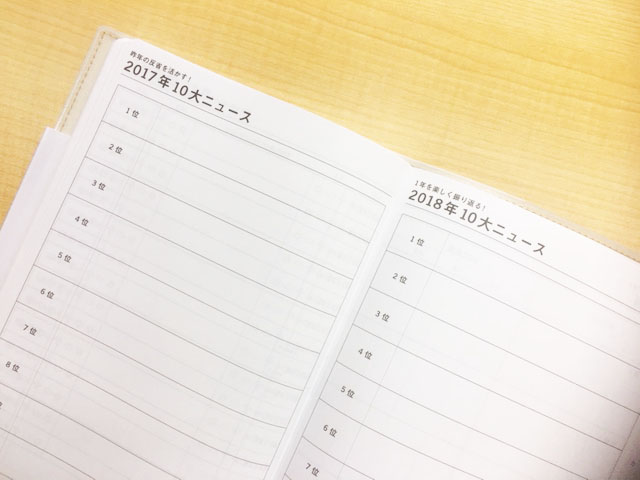 昨年の反省を活かす!
2017年10大ニュース
1位
2位
3位
4位
5位
6位
7位
8位
1年を楽しく振り返る!
2018年10大ニュース
1位
2位
3位
4位
5位
6位
7位